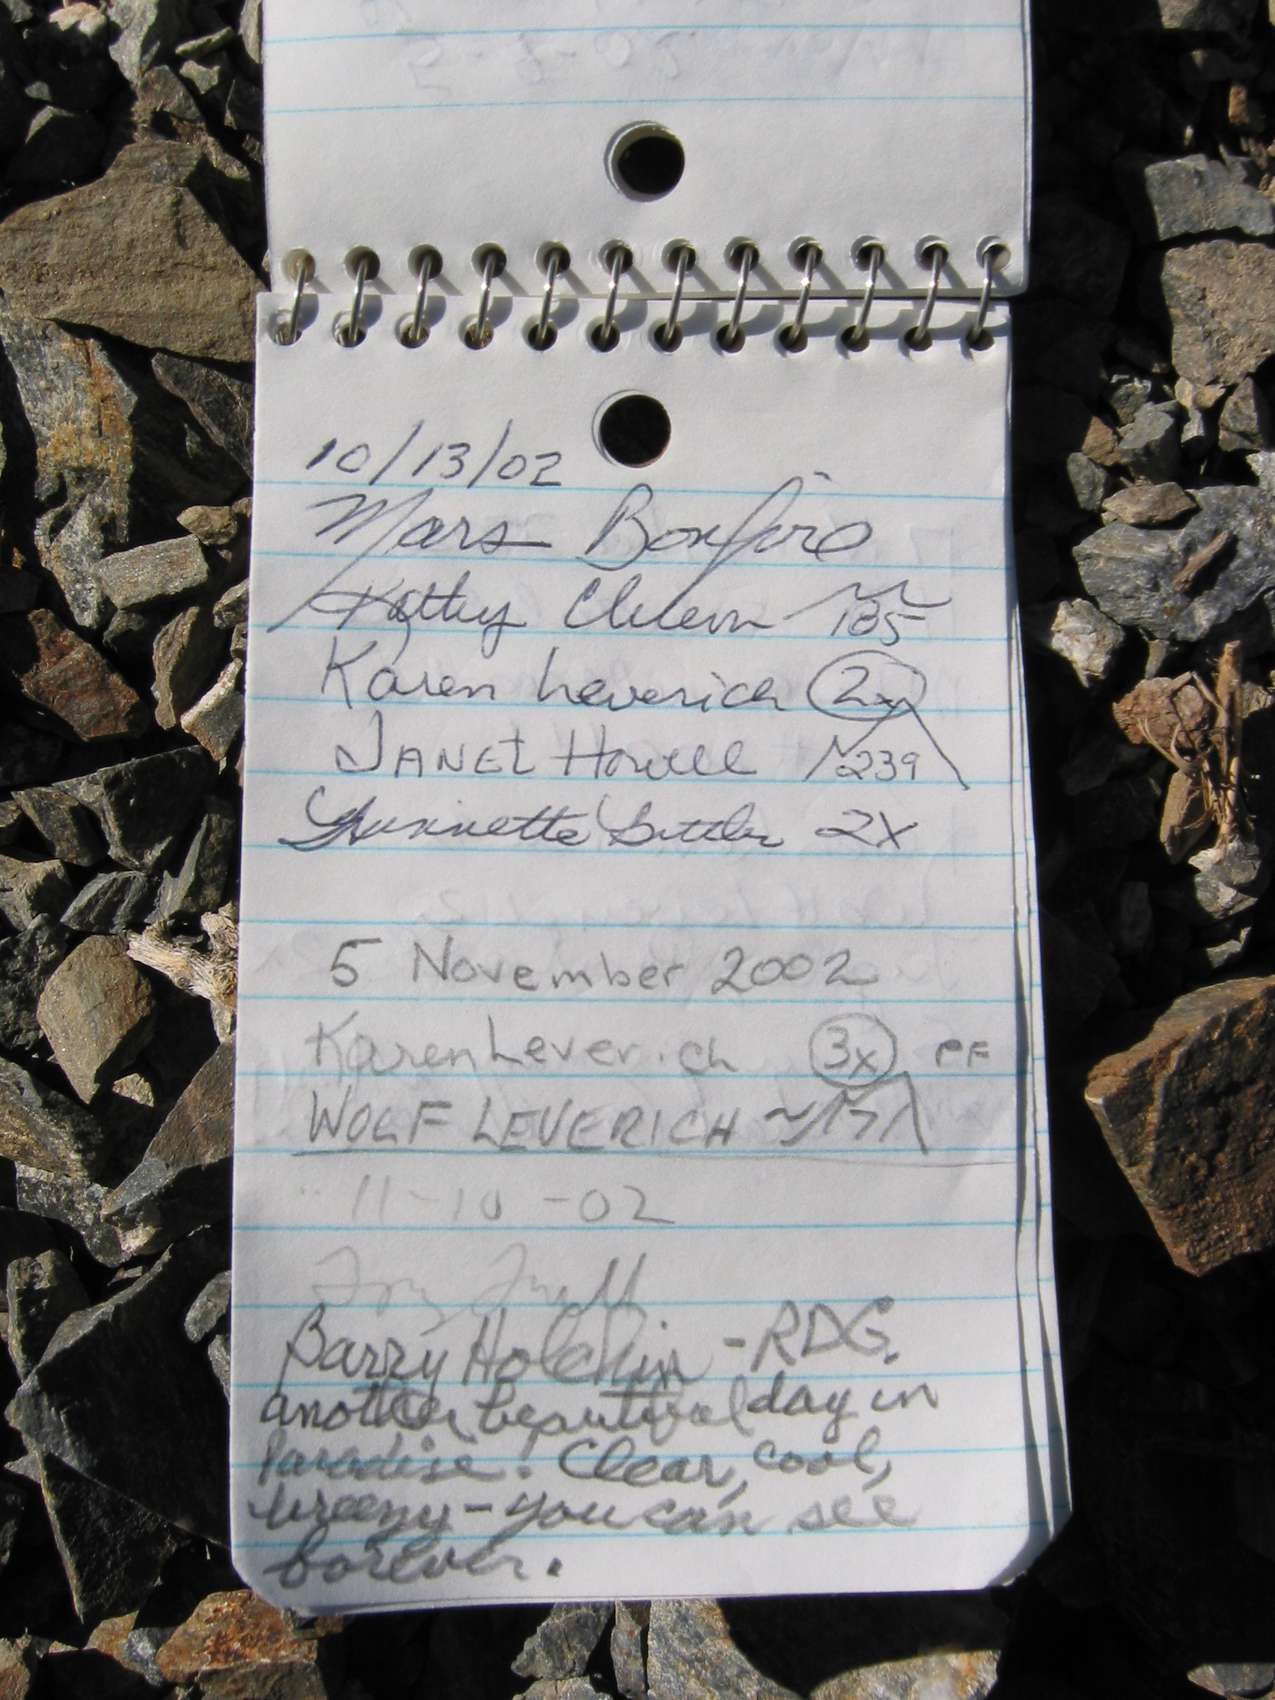 10/13/02
Mars Bonfire
Kathy 185
Karen Leverich 2x
JANET Howell 239
2X
5 November 2002
Karen Leverich 3x PF
WOLF LEVERICH ~
11-10-02
Barry Holchin - RDG.
another beautiful day in
Paradise! Clear, cool,
breezy - you can see
forever.